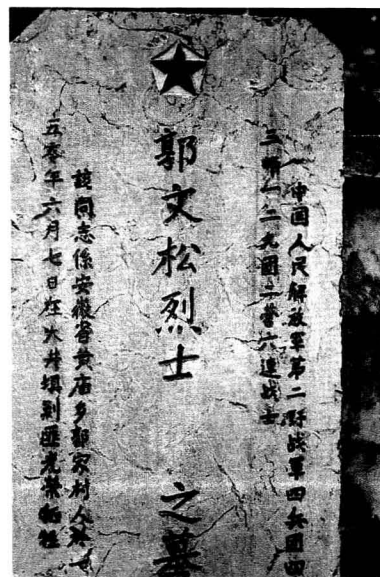 中国人民解放军第二野战军四兵团四
三师一二九团二营六连战士
郭文松烈士之墓
该同志係安徽省黄庙乡郭家村人於一
五零年六月七日在大井坝剿匪光荣牺牲